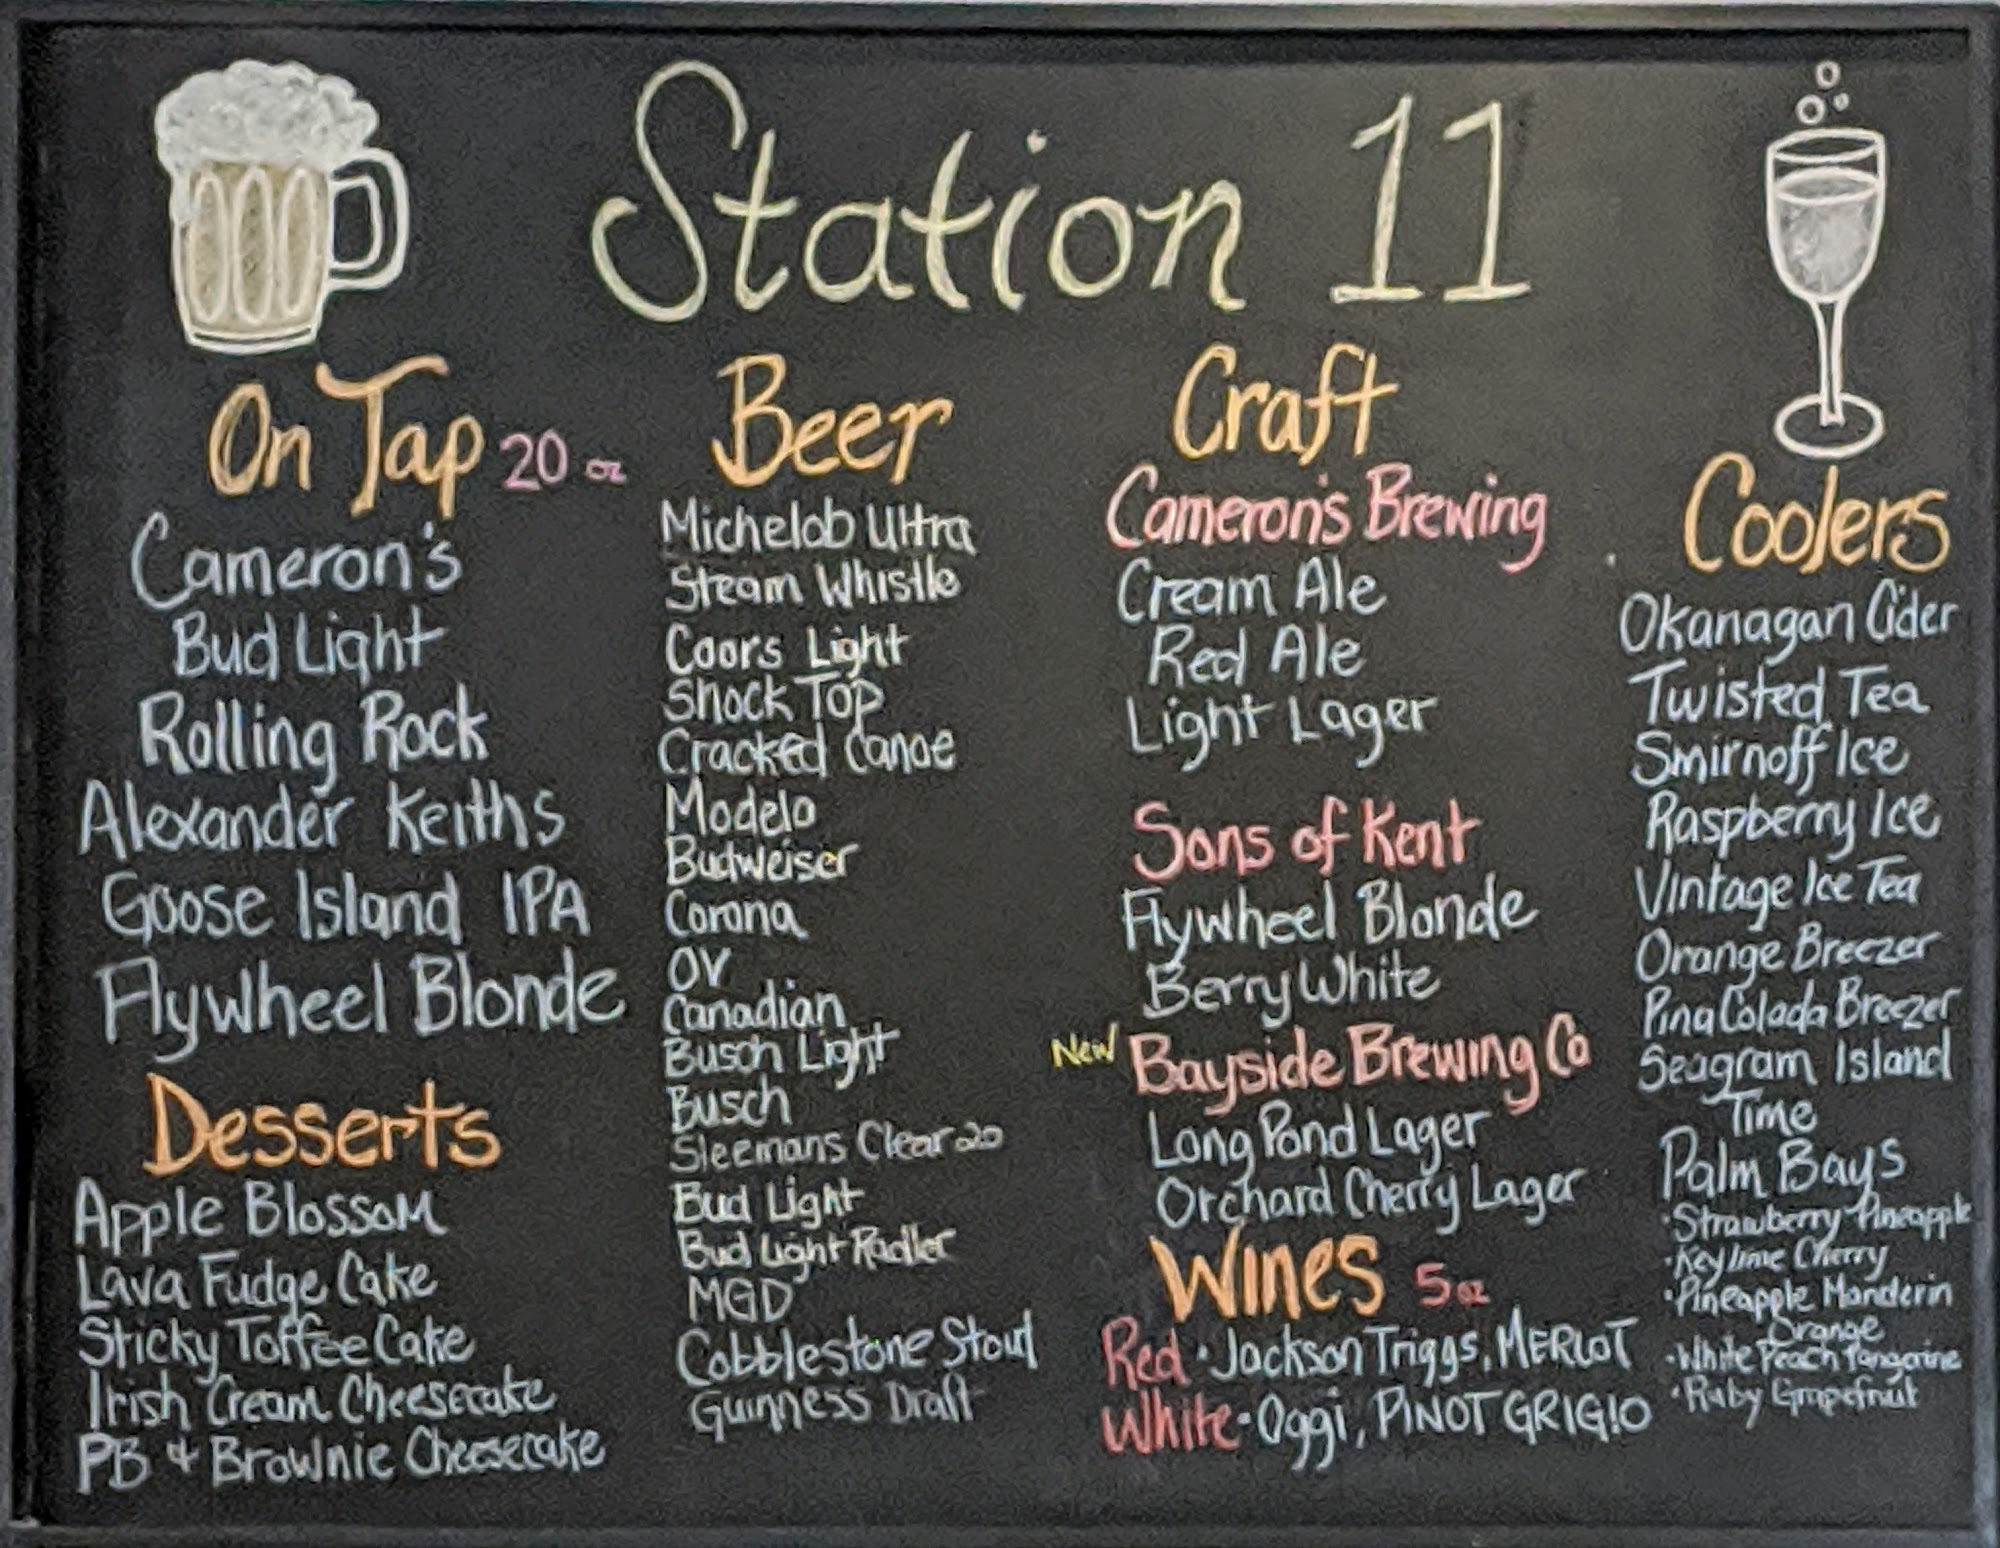 Station 11
On Tap 20 oz
Cameron's
Bud Light
Rolling Rock
Alexander Keiths
Goose Island IPA
Flywheel Blonde
Desserts
Apple Blossom
Lava Fudge Cake
Sticky Toffee Cake
Irish Cream Cheesecake
PB & Brownie Cheesecake
Beer
Michelob Ultra
Steam Whistle
Coors Light
Shock Top
Cracked Canoe
Modelo
Budweiser
Corona
OV
Canadian
Busch Light
Busch
Sleemans Clear 2.0
Bud Light
Bud Light Radler
MGD
Cobblestone Stout
Guinness Draft
Craft
Cameron's Brewing
Cream Ale
Red Ale
Light Lager
Sons of Kent
Flywheel Blonde
Berry White
New Bayside Brewing Co
Long Pond Lager
Orchard Cherry Lager
Wines 5 oz
Red • Jackson Triggs, MERLOT
White • Oggi, PINOT GRIGIO
Coolers
Okanagan Cider
Twisted Tea
Smirnoff Ice
Raspberry Ice
Vintage Ice Tea
Orange Breezer
Pina Colada Breezer
Seagram Island
Time
Palm Bays
• Strawberry Pineapple
• Key lime Cherry
• Pineapple Manderin
Orange
• White Peach Tangerine
• Ruby Grapefruit